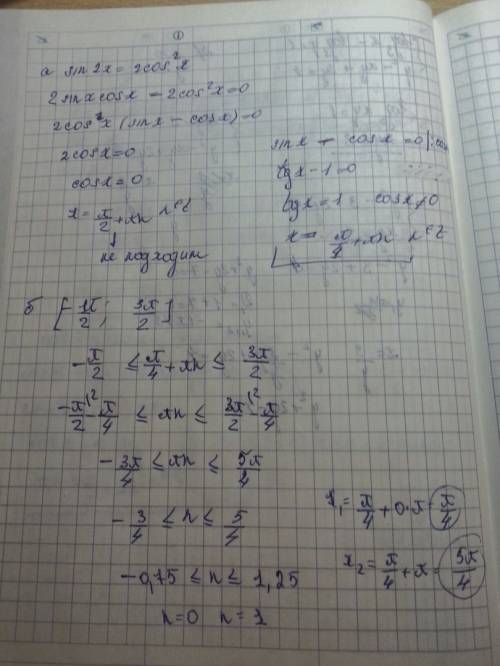 ①
а sin2x = 2cos²x
2sinxcosx - 2cos²x=0
2cosx (sinx - cosx)=0
2cosx=0
cosx=0
x= π/2 + πn n∈Z
↓
не подходит
sinx - cosx = 0 | : cos
tgx - 1=0
tgx=1 cosx≠0
x= π/4 + πn n∈Z
б [-π/2; 3π/2]
-π/2 ≤ π/4 + πn ≤ 3π/2
-π/2 - π/4 ≤ πn ≤ 3π/2 - π/4
-3π/4 ≤ πn ≤ 5π/4
-3/4 ≤ n ≤ 5/4
-0,75 ≤ n ≤ 1,25
n=0 n=1
x₁= π/4 + 0·π = π/4
x₂= π/4 + π = 5π/4